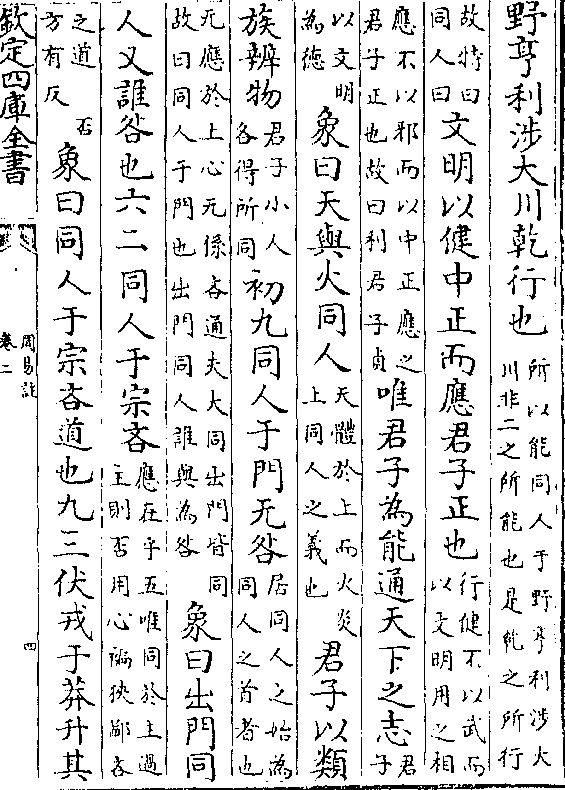 野亨利涉大川乾行也所以能同人于野亨利涉大川非二之所能也是乾之所行
故特曰同人曰文明以健中正而應君子正也行健不以武而以文明用之相
應不以邪而以中正應之君子正也故曰利君子貞唯君子為能通天下之志君子
以文明為德象曰天與火同人天體於上而火炎上同人之義也君子以類
族辨物君子小人各得所同初九同人于門无咎居同人之始為同人之首者也
无應於上心无係吝通夫大同出門皆同故曰同人于門也出門同人誰與為咎象曰出門同
人又誰咎也六二同人于宗吝應在乎五唯同於主過主則否用心褊狹鄙吝
之道象曰同人于宗吝道也九三伏戎于莽升其
方有反否
欽定四庫全書
周易註
卷二
四